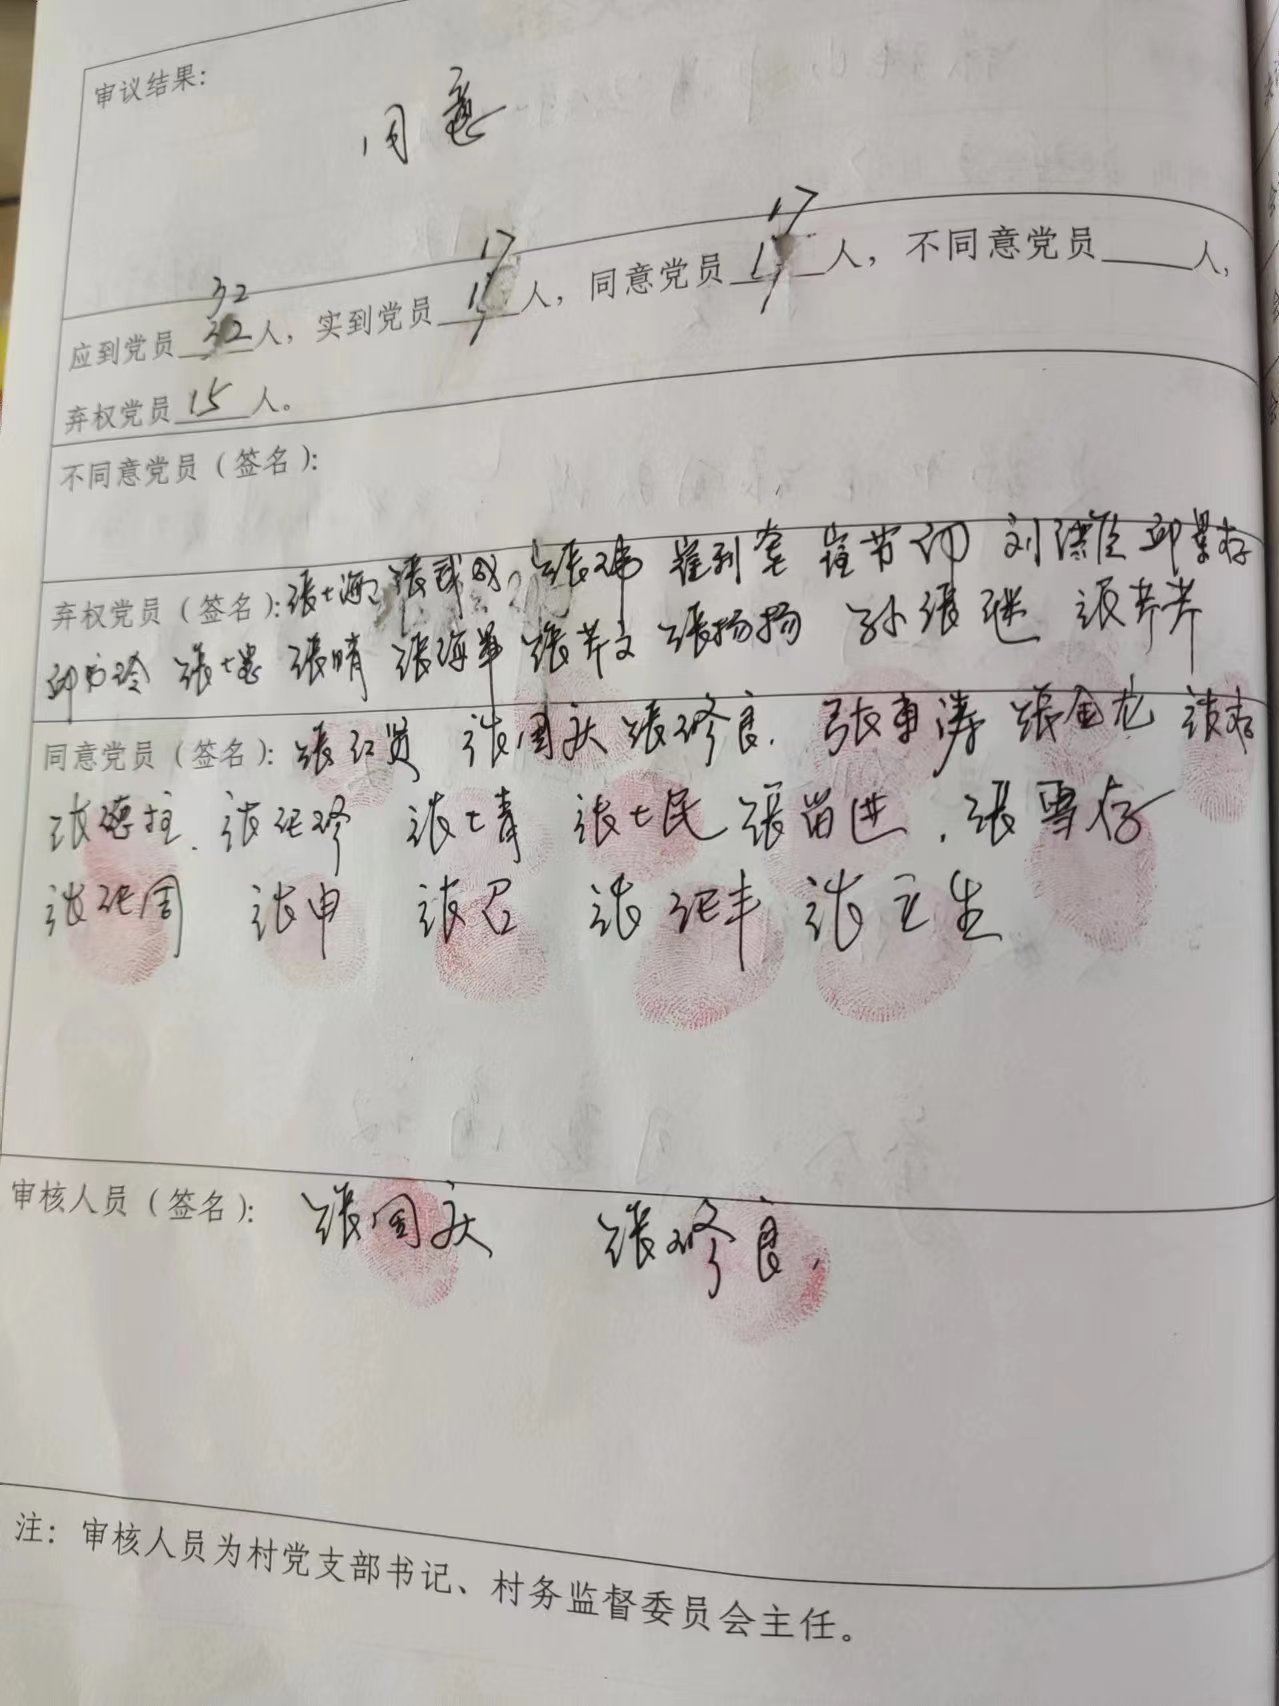 审议结果:
同意
32 17 17
应到党员 32 人，实到党员 17 人，同意党员 17 人，不同意党员 人，
弃权党员 15 人。
不同意党员（签名）:
弃权党员（签名）: 张七海 张成 张玮 崔利 崔 刘 邱景存
邱 玲 张七 张晴 张海军 张芹文 张扬扬 孙张继 张芹芹
同意党员（签名）: 张红贤 张国庆 张修良. 张東涛 张金龙 张存
张德柱. 张纪修 张七青 张七民 張留进 . 張雪存
张纪周 张申 张召 张纪丰 张卫生
审核人员（签名）: 张国庆 张修良.
注: 审核人员为村党支部书记、村务监督委员会主任。